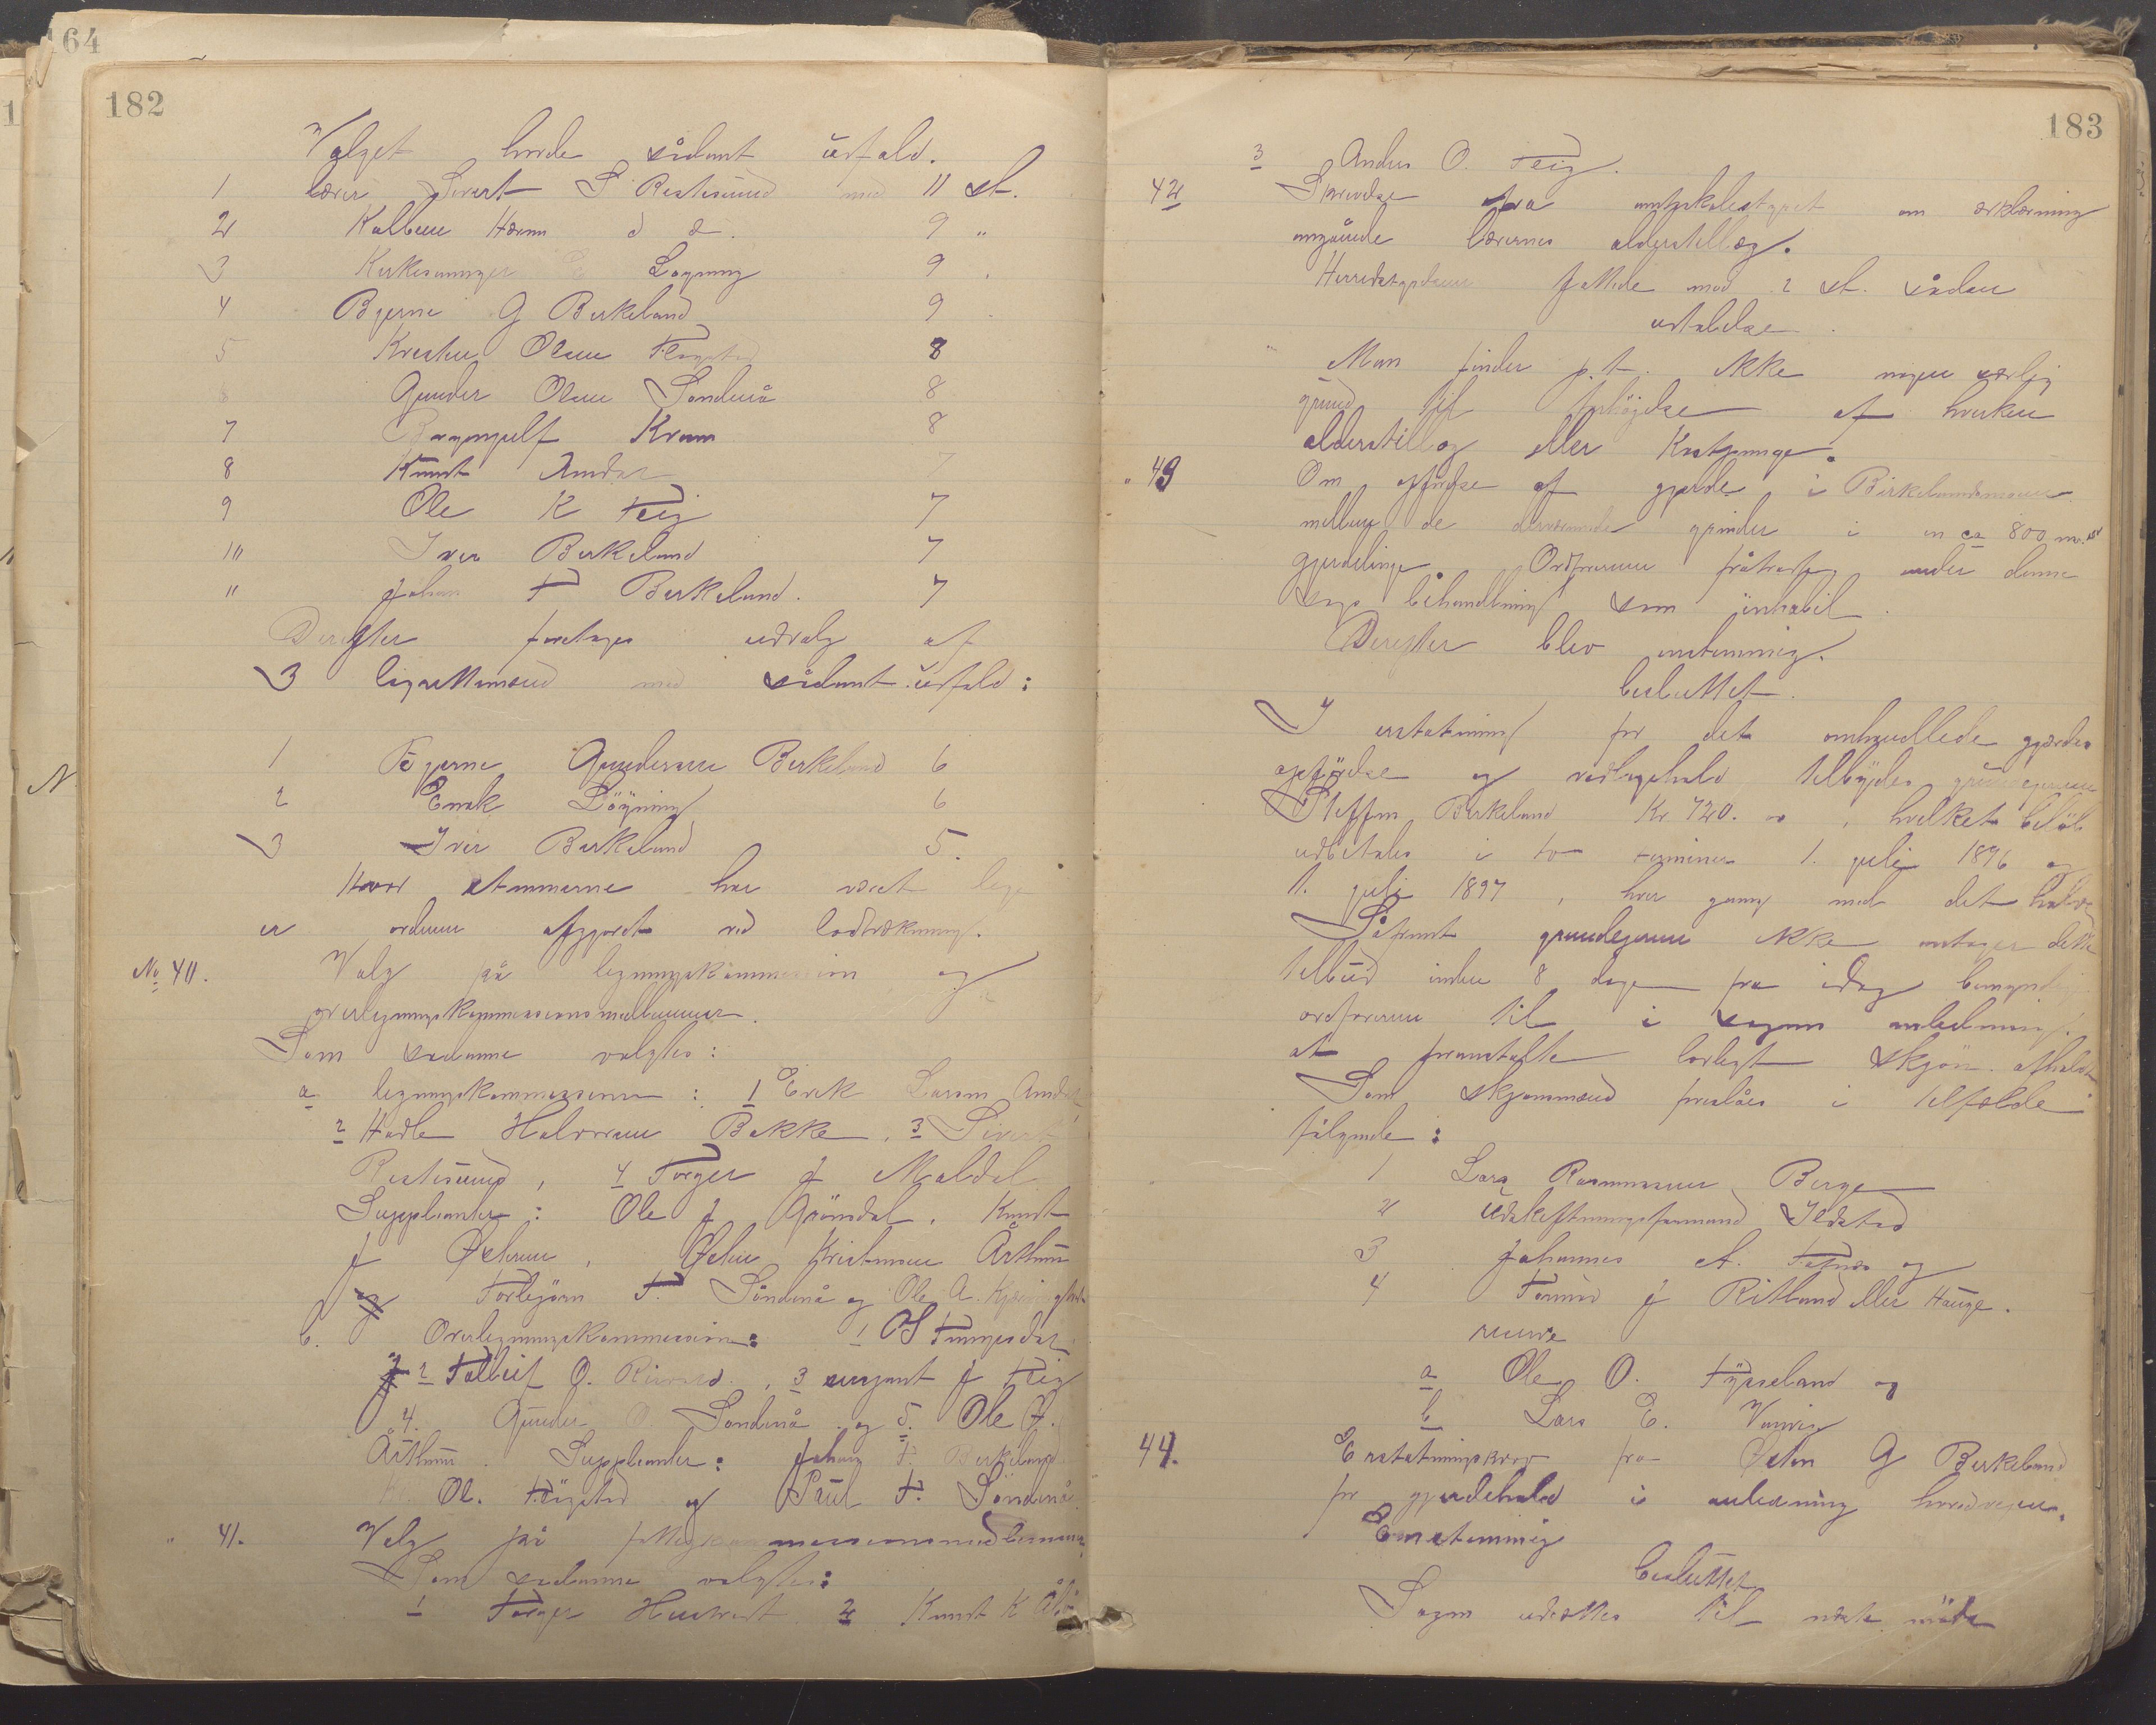 164
182
Valget havde sådant udfald.
1 lærer Sivert S Restesund med 11 st.
2 Kolbein Hærum d æ. 9 "
3 Kirkesanger E Løgning 9
4 Bjerne G Birkeland 9
5 Kristen Olsen Fløgstad 8
Gunder Olsen Søndenå 8
7 Kvam 8
8 Knut Amdal 7
9 Ole K Teig 7
10 Iver Birkeland 7
11 Johan T Birkeland. 7
Derefter foretages udvalg af
3 lagrettemænd med sådant udfald:
1 Bjerne Gundersen Birkeland 6
2 Enok Löyning 6
3 Iver Birkeland 5.
Hvor stemmerne har været lige
er ordenen afgjordt ved lodtrækning.
No 40. Valg på ligningskommission og
overligningskommissionsmedlemmer.
Som sådanne valgtes:
a ligningskommissionen: 1 Erik Larsen Amdal
2 Hadle Halvorsen Bakke, 3 Sivert
Restesund, 4 Torger J Maldal
Supplianter: Ole J Gröndal, Knut
J Østrem, Østen Kristensen Årthun
og Torbjörn T. Söndenå og Ole A.
b. Overligningskommission: 1 OS Tungesdal
2 Tolleif O. 3 sergant J Teig
4. Gunder O. Søndenå og 5. Ole J.
Årthun. Supplianter: Johan T. Birkeland
Ol. Flögstad og Paul T. Söndenå
" 41. Valg på fattigkommissionsmedlemmer.
Som sådanne valgtes:
1 Torger 2 Knut K
183
3 Anders O. Teig.
42 Skrivelse fra amtsskolestyret om erklæring
angående lærernes alderstillæg.
Herredstyrelsen fattede mod 2 st. sådan
udtalelse.
Man finder p.t. ikke nogen særlig
grund til forhöjelse af hverken
alderstillæg eller Kostpenge.
" 43 Om opførelse af gjerde i
mellem de derværende grinder i en ca 800 m.
gjerdelinje. Ordføreren fråtrådte under denne
sags behandling som inhabil.
Derefter blev enstemmig.
besluttet.
I erstatning for det omhandlede gjærdes
opförelse og vedligehold tilbydes grundejeren
Steffen Birkeland Kr. 720.00, hvilket belöb
udbetales i to terminer 1. juli 1896 og
1. juli 1897, hver gang med det halve
Såfremt grundejeren ikke antager dette
tilbud inden 8 dage fra idag bemyndiges
ordføreren til i sagens anledning.
at foranstalte lovligt skjøn afholdt
Som skjønsmænd foreslåes i tilfælde
følgende:
1 Lars Rasmussen Berge
2 Udskiftningsformand Ildstad
3 Johannes A. og
4 Tormod J Ritland eller Hauge.
a Ole O. og
b Lars E.
44. Erstatningskrav fra Østen G Birkeland
for gjerdehold i anledning hovedveien.
Enstemmig
besluttet
Sagen udsættes til næste möde